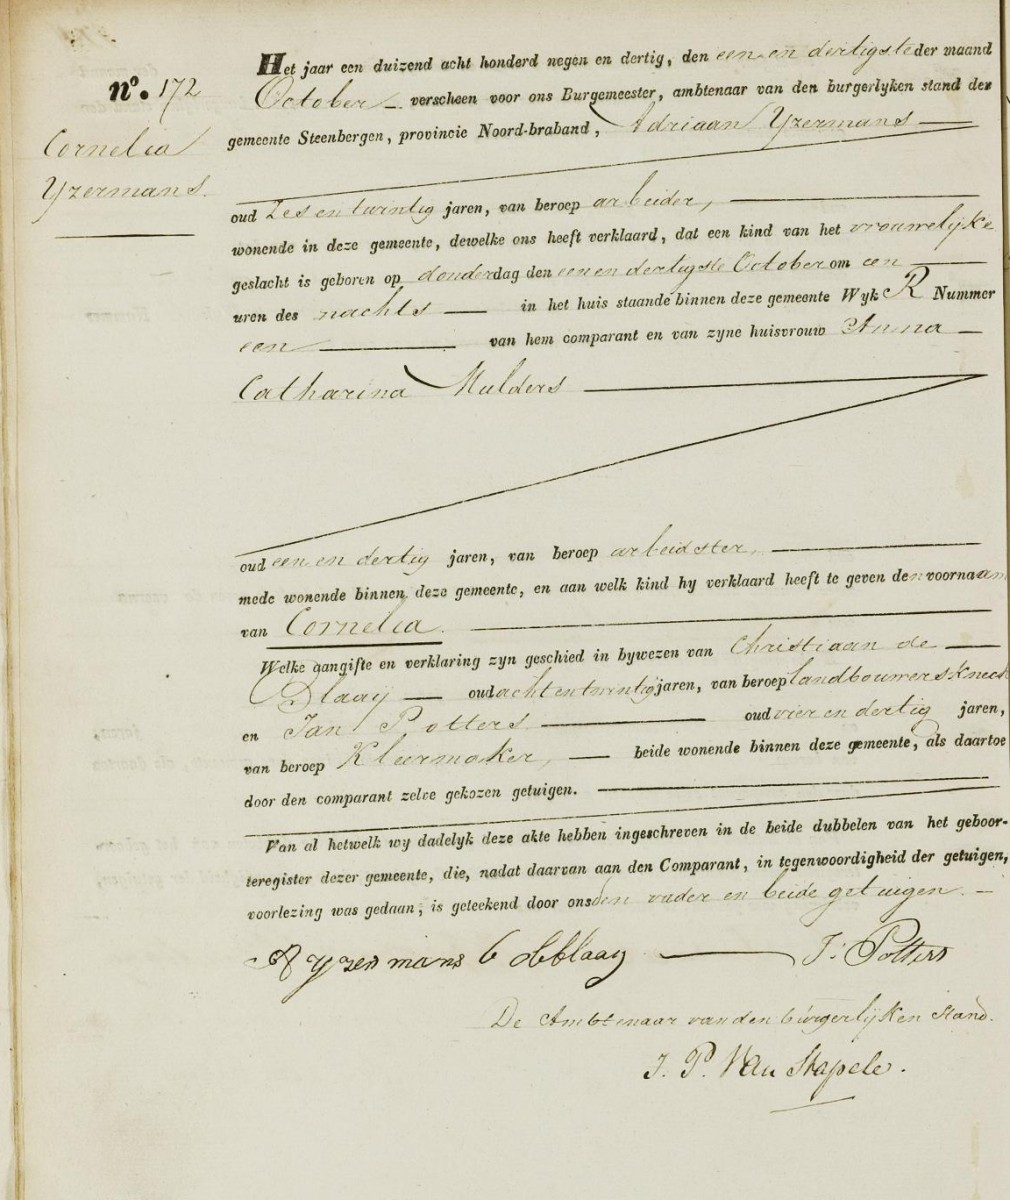 nº. 172
Cornelia
Yzermans.
Het jaar een duizend acht honderd negen en dertig, den een en dertigste der maand
October verscheen voor ons Burgemeester, ambtenaar van den burgerlyken stand der
gemeente Steenbergen, provincie Noord-braband, Adriaan Yzermans
oud Zes en twintig jaren, van beroep arbeider,
wonende in deze gemeente, dewelke ons heeft verklaard, dat een kind van het vrouwelijke
geslacht is geboren op donderdag den een en dertigste October om een
uren des nachts in het huis staande binnen deze gemeente Wyk R Nummer
een van hem comparant en van zyne huisvrouw Anna
Catharina Mulders
oud een en dertig jaren, van beroep arbeidster,
mede wonende binnen deze gemeente, en aan welk kind hy verklaard heeft te geven den voornaam
van Cornelia.
Welke aangifte en verklaring zyn geschied in bywezen van Christiaan de
Blaaij oud acht en twintig jaren, van beroep landbouwersknecht
en Jan Potters oud vier en dertig jaren,
van beroep Kleermaker, beide wonende binnen deze gemeente, als daartoe
door den comparant zelve gekozen getuigen.
Van al hetwelk wy dadelyk deze akte hebben ingeschreven in de beide dubbelen van het geboor-
teregister dezer gemeente, die, nadat daarvan aan den Comparant, in tegenwoordigheid der getuigen,
voorlezing was gedaan, is geteekend door ons den vader en beide getuigen.
A yzermans C deblaay J. Potters
De Ambtenaar van den burgerlijken stand.
J. P. Van Stapele.